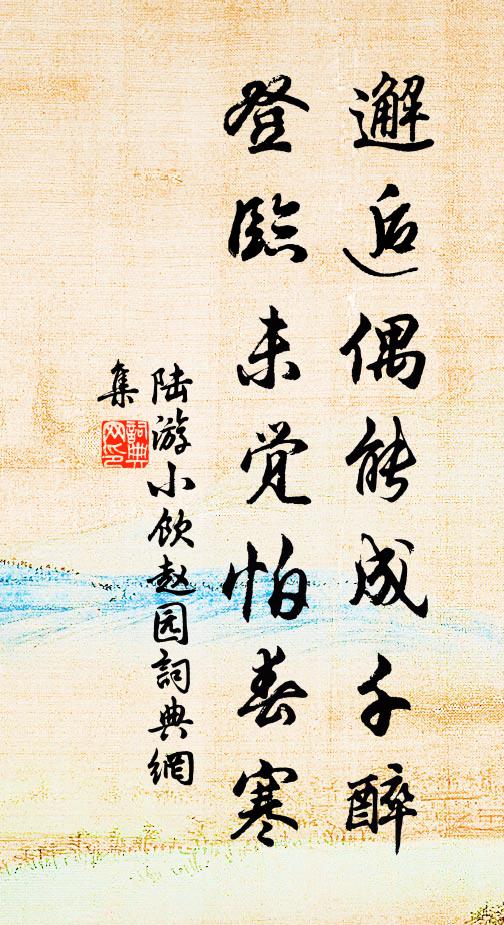 邂逅偶能成千醉
登臨未觉怕春寒
陆游小饮赵园詞典網
集
詞典网印